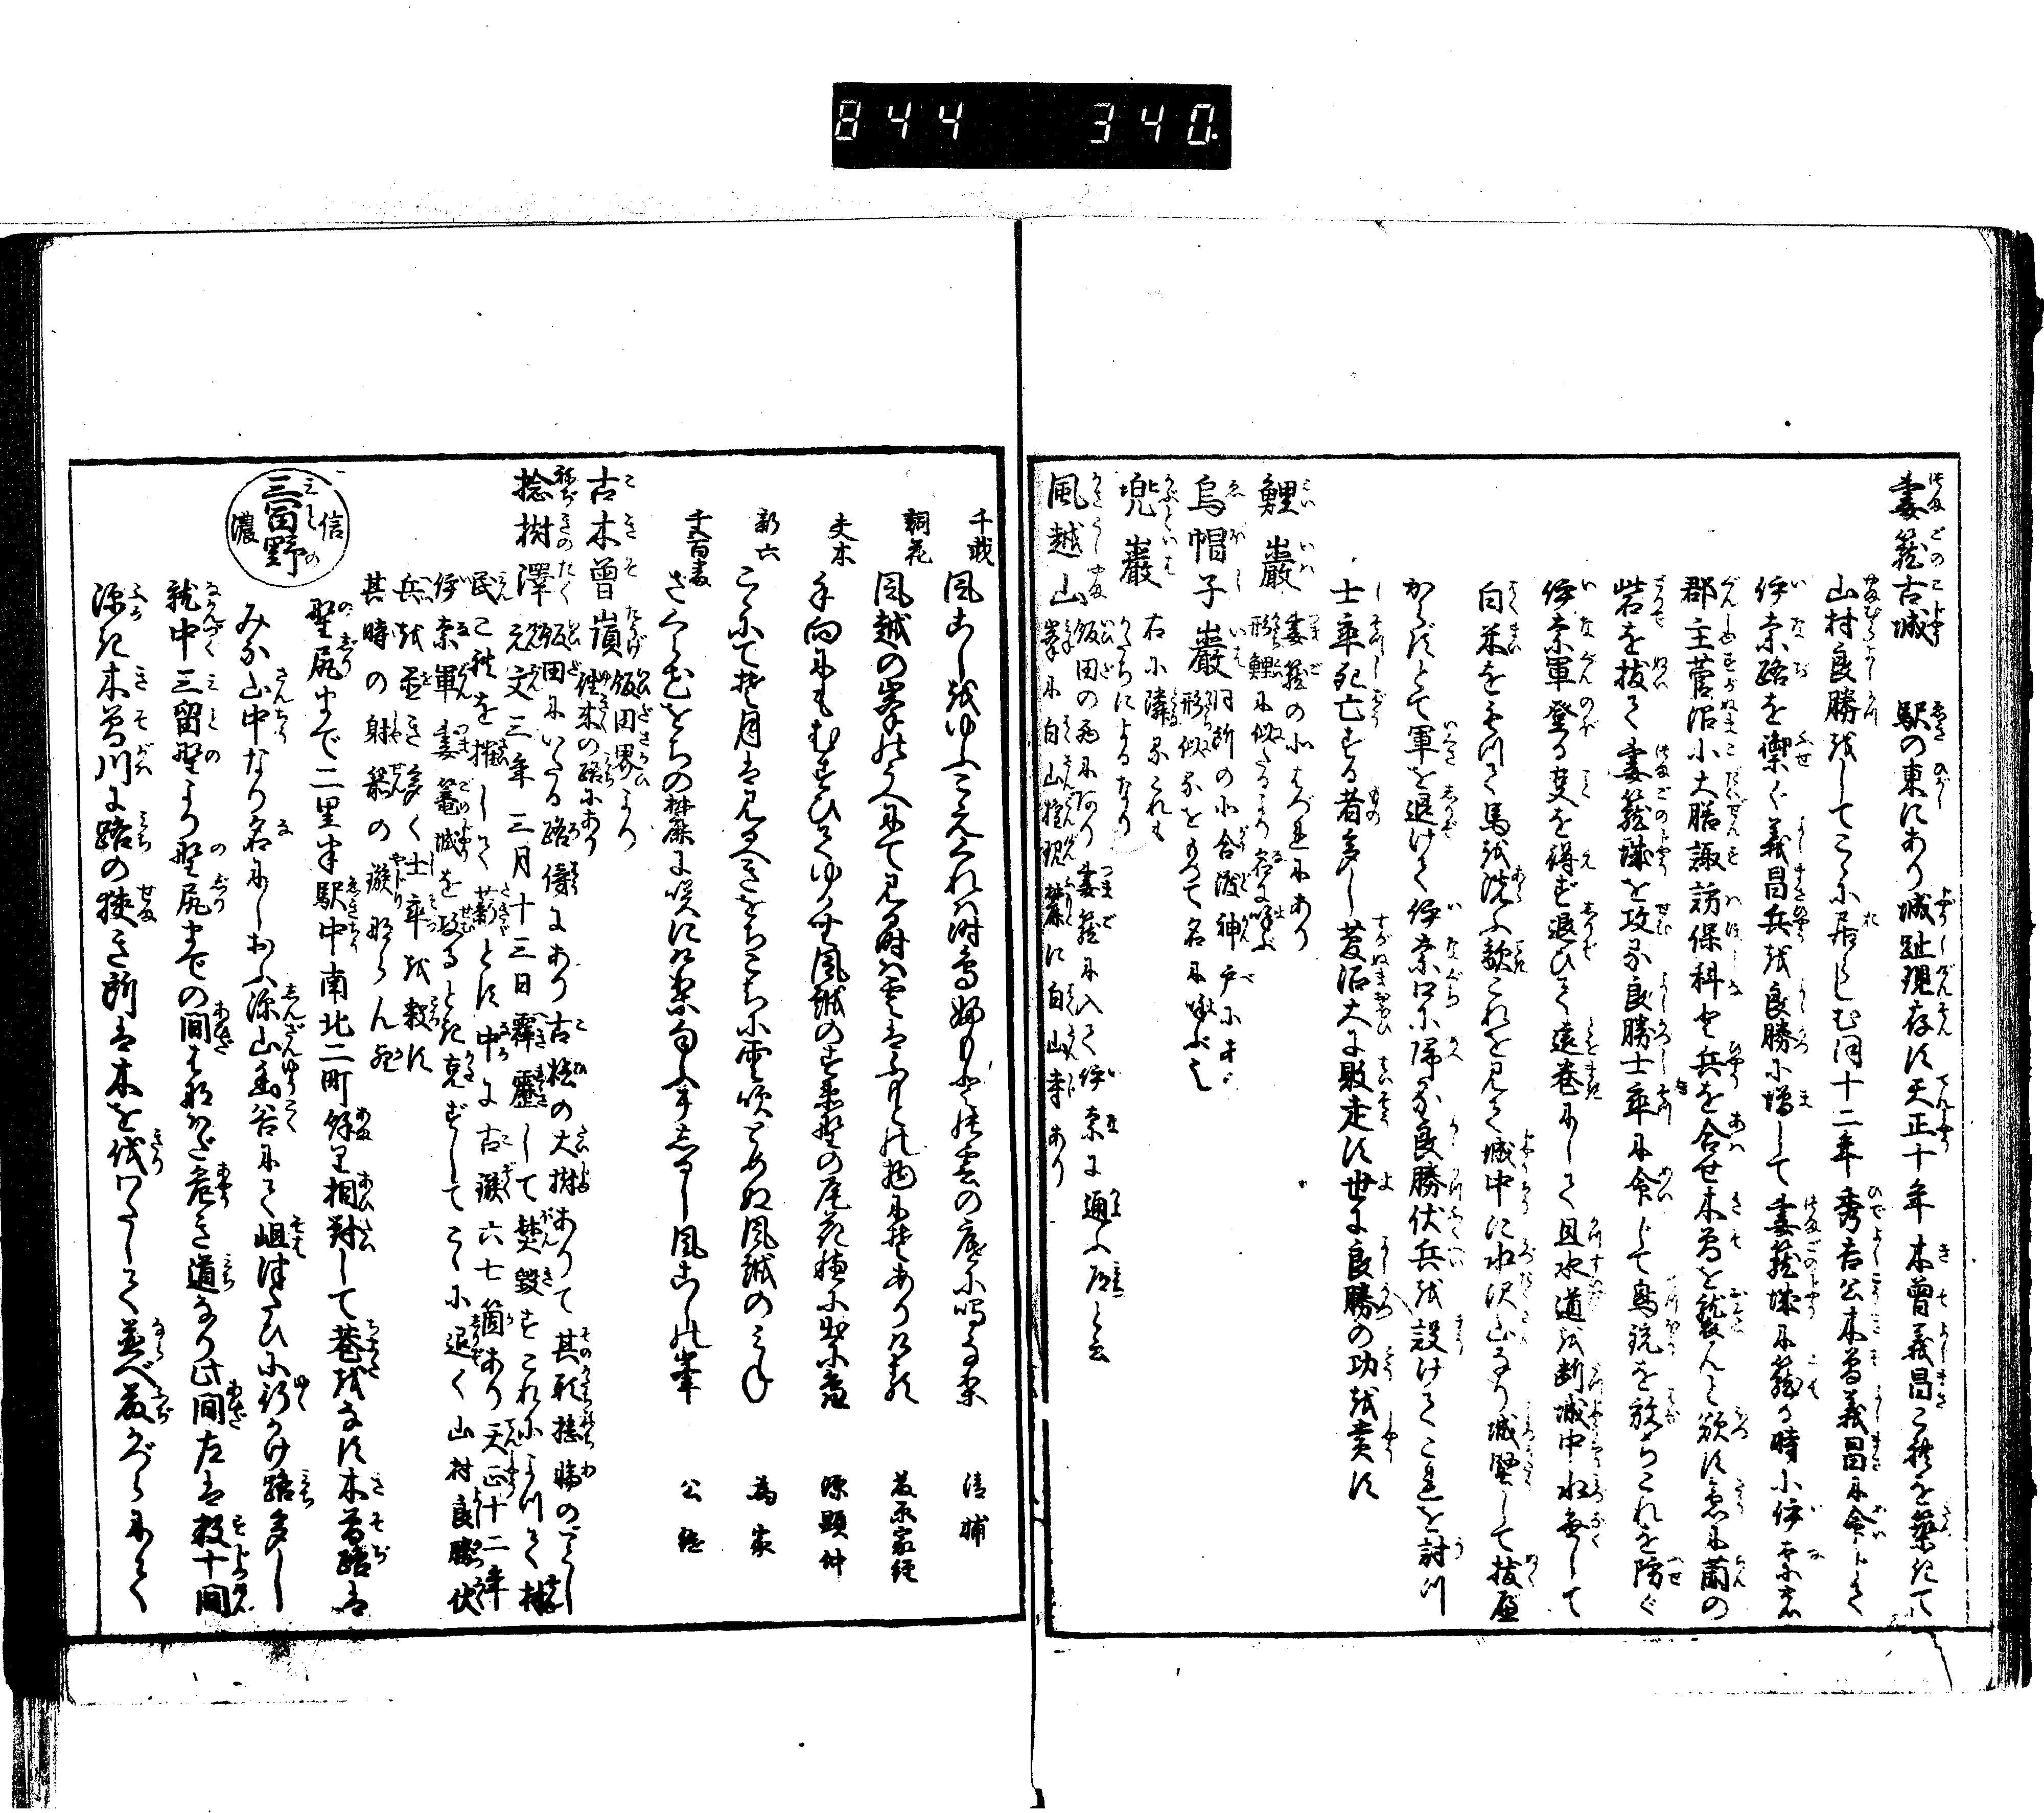 844 340
妻籠古城 駅の東にあり城趾現存す天正十年木曽義昌これを築きて
山村良勝をしてこゝに居らしむ同十二年秀吉公木曽義昌に命じて
伊奈路を禦ぐ義昌兵を良勝に増して妻籠城に籠る時に伊奈
郡主菅沼小大膳諏訪保科と兵を合せ木曽を襲んと欲す 蘭の
砦を抜て妻籠城を攻る良勝士卒に命じて鳥銃を放ちこれを防ぐ
伊奈軍登る事を得ず退ひて遠巻にして且水道を断城中水無して
白米をもつて馬を洗ふ敵これを見て城中に水沢山なり城堅して抜
からずとて軍を退けて伊奈口に帰る良勝伏兵を設けてこれを討つ
士卒死亡する者多し菅沼大に敗走す世に良勝の功を賞す
鯉巖 妻籠の北はづれにあり
形鯉に似たるより名に呼ぶ
烏帽子巖 同所の北合渡神戸にあり
形似るをもつて名に呼ぶ
兜巖 右に隣るこれも
かたちによるなり
風越山 飯田の西にあり妻籠に入て伊奈に通ふ 云
峯に白山権現麓に白山寺あり
千載 風こしをゆふこえくれば時鳥ふもとの雲の底に鳴なる 清輔
詞花 風越の峯のうへにて見る時は雲はふもとの物にぞありける 藤原家経
夫木 手向にもむすびてゆかん風越のすそ野の尾花穂に出にけり 源顕仲
新六 こゝにて 月は見るべきをちこちに雲吹 ぬ風越のみね 為家
千五百番 さくら をちの麓に咲にけり 匂 風こしの峯 公経
古木曽嶺 飯田界より
の路にあり
捻樹澤 飯田にいたる路傍にあり古桧の大樹ありて其形捻 のごとし
元文三年三月十三日霹靂して焚毀すこれによつて村
民これを摧して薪とす中に古鏃六七箇あり天正十二年
伊奈軍妻籠城を攻るとき克ずしてこゝに退く山村良勝伏
兵を置き多く士卒を殺す
其時の射 の鏃ならん
三留野 信濃
野尻まで二里半駅中南北二町餘相対して巷をなす木曽路は
みな山中なり名にしおふ深山幽谷にて岨づたひに行かけ路多し
就中三留野より野尻までの間はなはだ危き道なり此間左は数十間
深き木曽川に路の狭き所は木を伐わたして並べ藤かづらにて